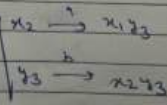 x₂ —a→ x₁ y₃
y₃ —b→ x₂ y₃